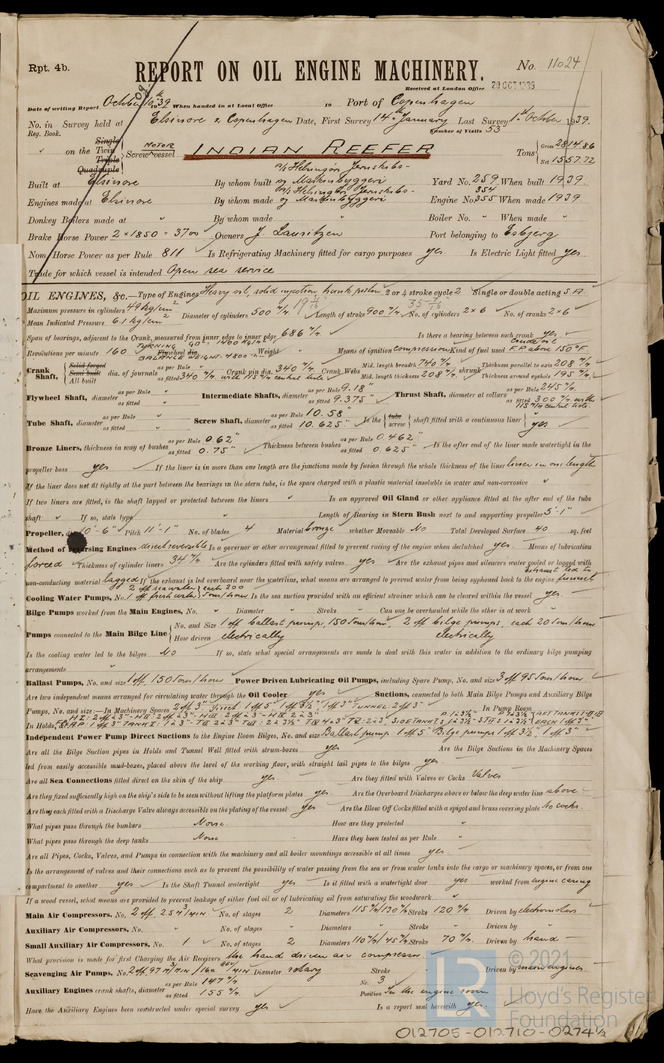 Rpt. 4b.
No. 11024
REPORT ON OIL ENGINE MACHINERY.
Received at London Office
Date of writing Report October 1939 When handed in at Local Office 19 Port of Copenhagen
No. in Survey held at Elsinore & Copenhagen Date, First Survey 14th January Last Survey 1st October 1939.
Reg. Book.
Number of Visits 53
Single
on the Twin
Triple
Quadruple
MOTOR
Screw vessel
INDIAN REEFER
Tons Gross 2814.86
Net 1557.72
Built at Elsinore By whom built Yard No. 259 When built 1939.
Engines made at Elsinore By whom made Engine No. 355 When made 1939
Donkey Boilers made at " By whom made " Boiler No. " When made "
Brake Horse Power 2 × 1850 = 3700 Owners J. Lauritzen Port belonging to Esbjerg
Nom. Horse Power as per Rule 811 Is Refrigerating Machinery fitted for cargo purposes yes Is Electric Light fitted yes
Trade for which vessel is intended Open sea service
OIL ENGINES, &c.—Type of Engines Heavy oil, solid injection, trunk piston 2 or 4 stroke cycle 2 Single or double acting S.A.
Maximum pressure in cylinders 49 kg/cm² Diameter of cylinders 500 m/m Length of stroke 900 m/m No. of cylinders 2×6 No. of cranks 2×6
Mean Indicated Pressure 6.1 kg/cm²
Span of bearings, adjacent to the Crank, measured from inner edge to inner edge 686 m/m Is there a bearing between each crank yes
Revolutions per minute 160 Weight Means of ignition compression Kind of fuel used Crude oil F.P. above 150°F.
Crank Shaft, Solid forged Semi built All built dia. of journals as per Rule as fitted 340 m/m with 115 m/m central hole Crank pin dia. 340 m/m Crank Webs Mid. length breadth 740 m/m Mid. length thickness 208 m/m shrunk Thickness parallel to axis 208 m/m Thickness around eyehole 195 m/m
Flywheel Shaft, diameter as per Rule as fitted Intermediate Shafts, diameter as per Rule 9.18" as fitted 9.375" Thrust Shaft, diameter at collars as per Rule 245 m/m as fitted 300 m/m with 115 m/m central hole
Tube Shaft, diameter as per Rule as fitted Screw Shaft, diameter as per Rule 10.58" as fitted 10.625" Is the tube screw shaft fitted with a continuous liner yes
Bronze Liners, thickness in way of bushes as per Rule 0.62" as fitted 0.75" Thickness between bushes as per Rule 0.462" as fitted 0.625" Is the after end of the liner made watertight in the
propeller boss yes If the liner is in more than one length are the junctions made by fusion through the whole thickness of the liner liner in one length
If the liner does not fit tightly at the part between the bearings in the stern tube, is the space charged with a plastic material insoluble in water and non-corrosive "
If two liners are fitted, is the shaft lapped or protected between the liners " Is an approved Oil Gland or other appliance fitted at the after end of the tube
shaft " If so, state type " Length of Bearing in Stern Bush next to and supporting propeller 5'-1"
Propeller, dia. 10'-6" Pitch 11'-1" No. of blades 4 Material bronze whether Moveable No Total Developed Surface 40 sq. feet
Method of reversing Engines direct reversible Is a governor or other arrangement fitted to prevent racing of the engine when declutched yes Means of lubrication
forced Thickness of cylinder liners 34 m/m Are the cylinders fitted with safety valves yes Are the exhaust pipes and silencers water cooled or lagged with
non-conducting material lagged If the exhaust is led overboard near the waterline, what means are arranged to prevent water from being syphoned back to the engine exhaust led to funnel
Cooling Water Pumps, No. 2 off sea water, each 200 1 off fresh water tons/hour Is the sea suction provided with an efficient strainer which can be cleared within the vessel yes
Bilge Pumps worked from the Main Engines, No. " Diameter " Stroke " Can one be overhauled while the other is at work "
Pumps connected to the Main Bilge Line No. and Size 1 off ballast pump, 150 tons/hour 2 off bilge pumps, each 20 tons/hour
How driven electrically electrically
Is the cooling water led to the bilges No If so, state what special arrangements are made to deal with this water in addition to the ordinary bilge pumping
arrangements "
Ballast Pumps, No. and size 1 off 150 tons/hour Power Driven Lubricating Oil Pumps, including Spare Pump, No. and size 3 off 95 tons/hour
Are two independent means arranged for circulating water through the Oil Cooler yes Suctions, connected to both Main Bilge Pumps and Auxiliary Bilge
Pumps, No. and size:—In Machinery Spaces In Pump Room
In Holds, &c.
Independent Power Pump Direct Suctions to the Engine Room Bilges, No. and size Ballast pump 1 off 5" Bilge pumps 1 off 3½" 1 off 3"
Are all the Bilge Suction pipes in Holds and Tunnel Well fitted with strum-boxes yes Are the Bilge Suctions in the Machinery Spaces
led from easily accessible mud-boxes, placed above the level of the working floor, with straight tail pipes to the bilges yes
Are all Sea Connections fitted direct on the skin of the ship yes Are they fitted with Valves or Cocks Valves
Are they fixed sufficiently high on the ship's side to be seen without lifting the platform plates yes Are the Overboard Discharges above or below the deep water line above
Are they each fitted with a Discharge Valve always accessible on the plating of the vessel yes Are the Blow Off Cocks fitted with a spigot and brass covering plate No cocks.
What pipes pass through the bunkers None How are they protected "
What pipes pass through the deep tanks None Have they been tested as per Rule "
Are all Pipes, Cocks, Valves, and Pumps in connection with the machinery and all boiler mountings accessible at all times yes
Is the arrangement of valves and their connections such as to prevent the possibility of water passing from the sea or from water tanks into the cargo or machinery spaces, or from one
compartment to another yes Is the Shaft Tunnel watertight yes Is it fitted with a watertight door yes worked from engine casing
If a wood vessel, what means are provided to prevent leakage of either fuel oil or of lubricating oil from saturating the woodwork "
Main Air Compressors, No. 2 off, 254 No. of stages 2 Diameters 115 m/m/130 m/m Stroke 120 m/m Driven by electromotors
Auxiliary Air Compressors, No. " No. of stages " Diameters " Stroke " Driven by "
Small Auxiliary Air Compressors, No. 1 No. of stages 2 Diameters 110 m/m/45 m/m Stroke 70 m/m Driven by hand
What provision is made for first Charging the Air Receivers the hand driven air compressor
Scavenging Air Pumps, No. Diameter rotary Stroke Driven by main engines
Auxiliary Engines crank shafts, diameter as per Rule 147 m/m as fitted 155 m/m No. 3 Position In the engine room
Have the Auxiliary Engines been constructed under special survey yes Is a report sent herewith yes
© 2021
Lloyd's Register
Foundation
012705-012710-0274½